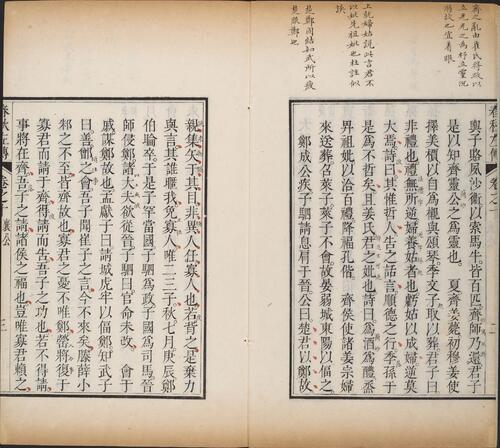 上就婦姑說此言君不
以妣先祖妣也杜註似
誤
與子賂夙沙衛以索馬牛皆百匹齊師乃還君子
是以知齊靈公之為靈也 夏齊姜薨初穆姜使
擇美檟以自為櫬與頌琴季文子取以葬君子曰
非禮也禮無所逆婦養姑者也虧姑以成婦逆莫
大焉詩曰其惟哲人告之話言順德之行季孫于
是為不哲矣且姜氏君之妣也詩曰為酒為醴烝
畀祖妣以洽百禮降福孔偕 齊侯使諸姜宗婦
來送葬召萊子萊子不會故晏弱城東陽以偪之
鄭成公疾子駟請息肩于晉公曰楚君以鄭故
親集矢于其目非異人任寡人也若背之是棄力
與言其誰暱我免寡人唯二三子秋七月庚辰鄭
伯睔卒于是子罕當國子駟為政子國為司馬晉
師侵鄭諸大夫欲從晉子駟曰官命未改 會于
戚謀鄭故也孟獻子曰請城虎牢以偪鄭知武子
曰善鄫之會吾子聞崔子之言今不來矣滕薛小
邾之不至皆齊故也寡君之憂不唯鄭罃將復于
寡君而請于齊得請而告吾子之功也若不得請
事將在齊吾子之請諸侯之福也豈唯寡君賴之
春秋左傳 卷之 襄公 三